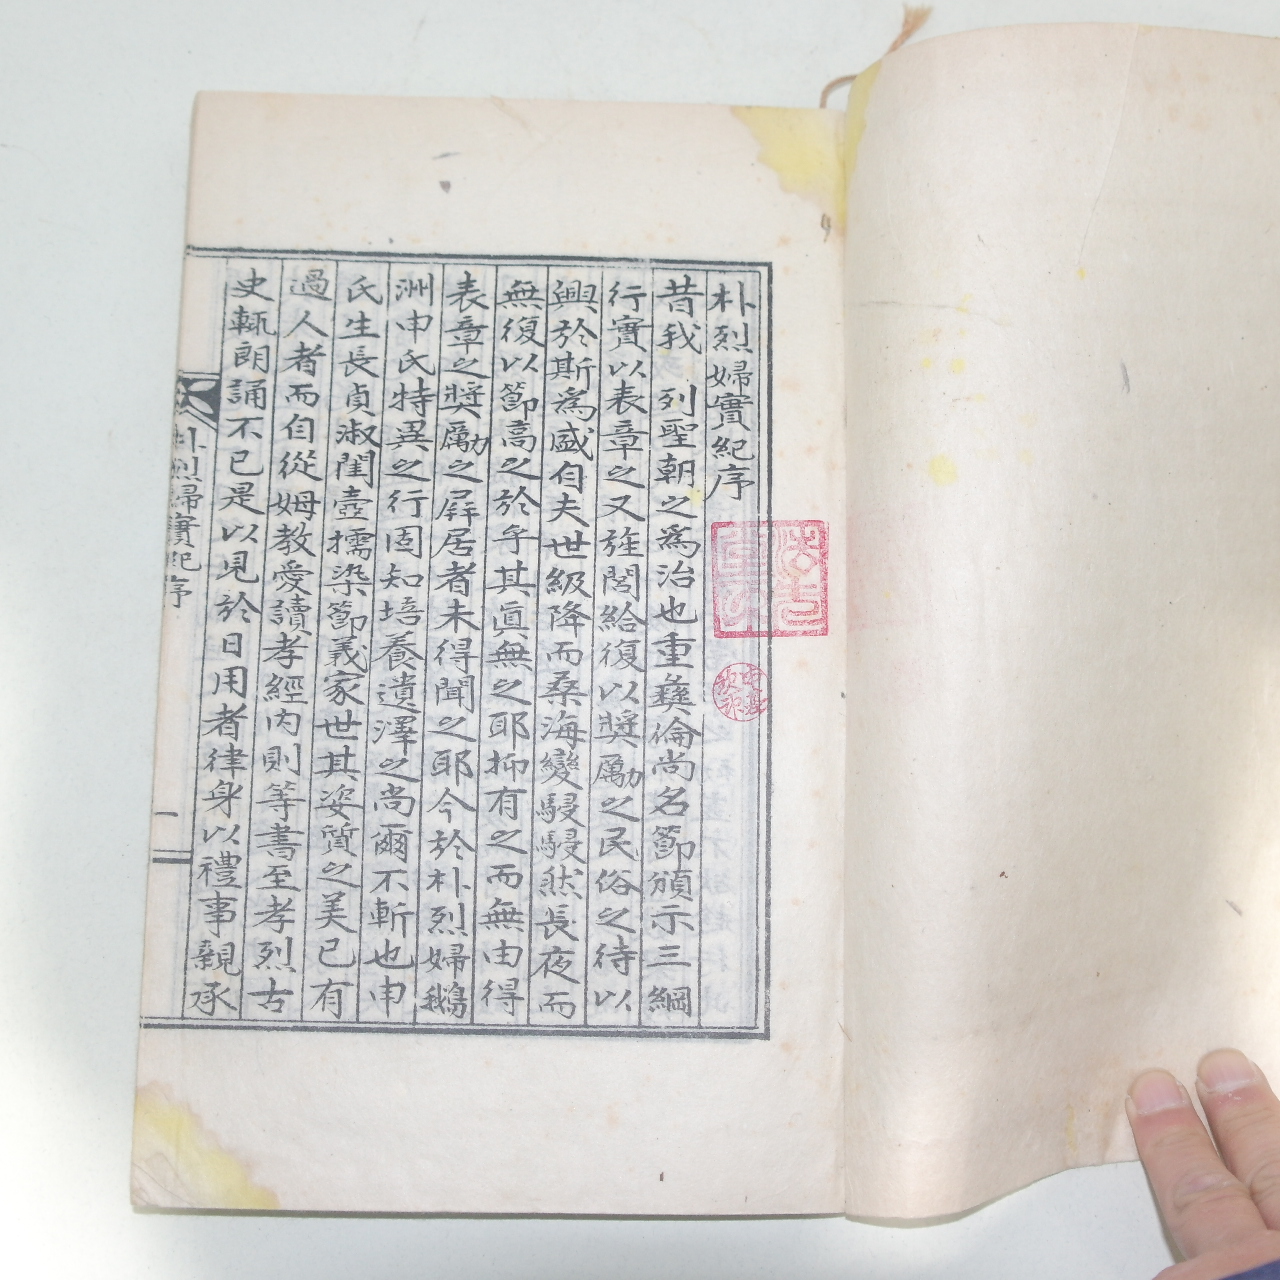 朴烈婦實紀序
昔我 列聖朝之爲治也重彜倫尚名節頒示三綱
行實以表章之又旌閭給復以奬勵之民俗之待以
興於斯爲盛自夫世級降而桑海變駸駸然長夜而
無復以節高之於乎其眞無之耶抑有之而無由得
表章之奬勵之屛居者未得聞之耶今於朴烈婦鵝
洲申氏特異之行固知培養遺澤之尚爾不斬也申
氏生長貞淑閨壼擩染節義家世其姿質之美已有
過人者而自從姆教愛讀孝經內則等書至孝烈古
史輒朗誦不已是以見於日用者律身以禮事親承
朴烈婦實紀序
一